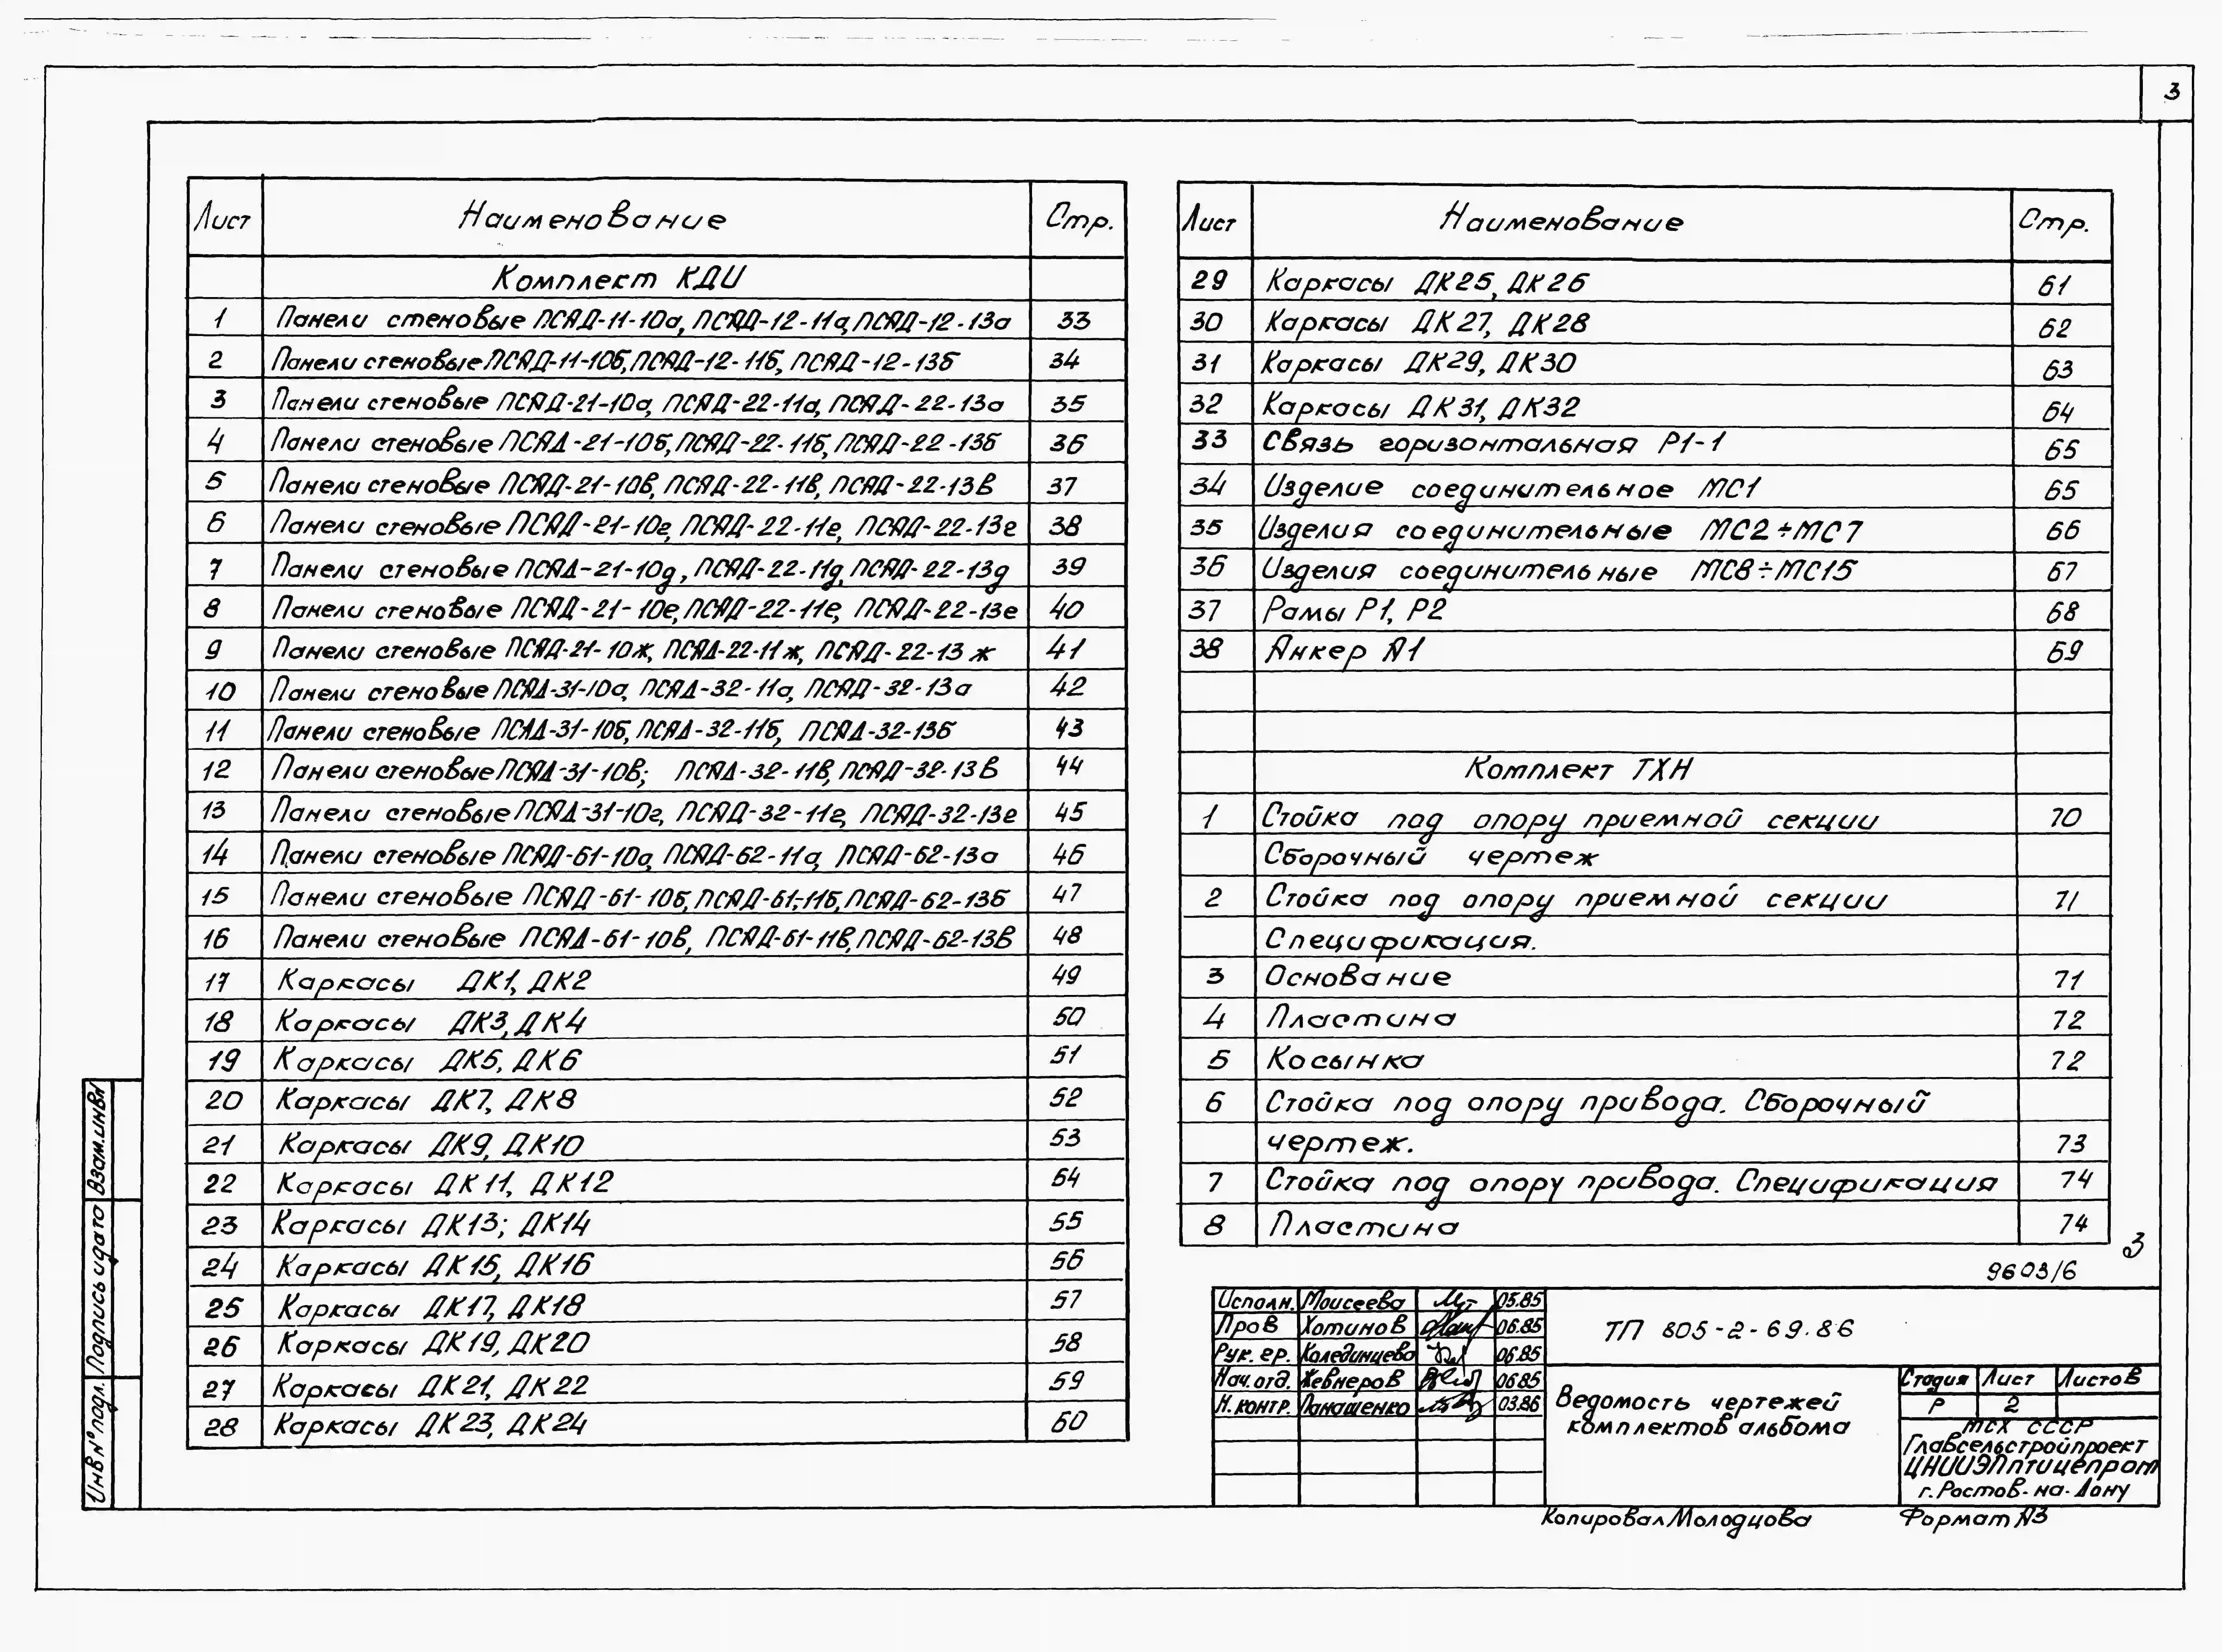 3
Лист Наименование Стр.
Комплект КДИ
1 Панели стеновые ПСЯД-11-10а, ПСЯД-12-11а, ПСЯД-12-13а 33
2 Панели стеновые ПСЯД-11-10б, ПСЯД-12-11б, ПСЯД-12-13б 34
3 Панели стеновые ПСЯД-21-10а, ПСЯД-22-11а, ПСЯД-22-13а 35
4 Панели стеновые ПСЯД-21-10б, ПСЯД-22-11б, ПСЯД-22-13б 36
5 Панели стеновые ПСЯД-21-10в, ПСЯД-22-11в, ПСЯД-22-13в 37
6 Панели стеновые ПСЯД-21-10г, ПСЯД-22-11г, ПСЯД-22-13г 38
7 Панели стеновые ПСЯД-21-10д, ПСЯД-22-11д, ПСЯД-22-13д 39
8 Панели стеновые ПСЯД-21-10е, ПСЯД-22-11е, ПСЯД-22-13е 40
9 Панели стеновые ПСЯД-21-10ж, ПСЯД-22-11ж, ПСЯД-22-13ж 41
10 Панели стеновые ПСЯД-31-10а, ПСЯД-32-11а, ПСЯД-32-13а 42
11 Панели стеновые ПСЯД-31-10б, ПСЯД-32-11б, ПСЯД-32-13б 43
12 Панели стеновые ПСЯД-31-10в; ПСЯД-32-11в, ПСЯД-32-13в 44
13 Панели стеновые ПСЯД-31-10г, ПСЯД-32-11г, ПСЯД-32-13г 45
14 Панели стеновые ПСЯД-61-10а, ПСЯД-62-11а, ПСЯД-62-13а 46
15 Панели стеновые ПСЯД-61-10б, ПСЯД-61-11б, ПСЯД-62-13б 47
16 Панели стеновые ПСЯД-61-10в, ПСЯД-61-11в, ПСЯД-62-13в 48
17 Каркасы ДК1, ДК2 49
18 Каркасы ДК3, ДК4 50
19 Каркасы ДК5, ДК6 51
20 Каркасы ДК7, ДК8 52
21 Каркасы ДК9, ДК10 53
22 Каркасы ДК11, ДК12 54
23 Каркасы ДК13; ДК14 55
24 Каркасы ДК15, ДК16 56
25 Каркасы ДК17, ДК18 57
26 Каркасы ДК19, ДК20 58
27 Каркасы ДК21, ДК22 59
28 Каркасы ДК23, ДК24 60
Лист Наименование Стр.
29 Каркасы ДК25, ДК26 61
30 Каркасы ДК27, ДК28 62
31 Каркасы ДК29, ДК30 63
32 Каркасы ДК31, ДК32 64
33 Связь горизонтальная Р1-1 65
34 Изделие соединительное МС1 65
35 Изделия соединительные МС2÷МС7 66
36 Изделия соединительные МС8÷МС15 67
37 Рамы Р1, Р2 68
38 Анкер А1 69
Комплект ТХН
1 Стойка под опору приемной секции 70
Сборочный чертеж
2 Стойка под опору приемной секции 71
Спецификация.
3 Основание 71
4 Пластина 72
5 Косынка 72
6 Стойка под опору привода. Сборочный
чертеж. 73
7 Стойка под опору привода. Спецификация 74
8 Пластина 74
3
9603/6
Исполн. Моисеева 05.85
Пров Хотинов 06.85
Рук. гр. Колединцева 06.85
Нач. отд. Жевнеров 06.85
Н. контр. Панашенко 03.86
ТП 805-2-69.86
Ведомость чертежей
комплектов альбома
Стадия Лист Листов
Р 2
МСХ СССР
Главсельстройпроект
ЦНИИЭПптицепром
г. Ростов-на-Дону
Копировал Молодцова Формат А3
Инв N° подл. Подпись и дата Взам.инвN